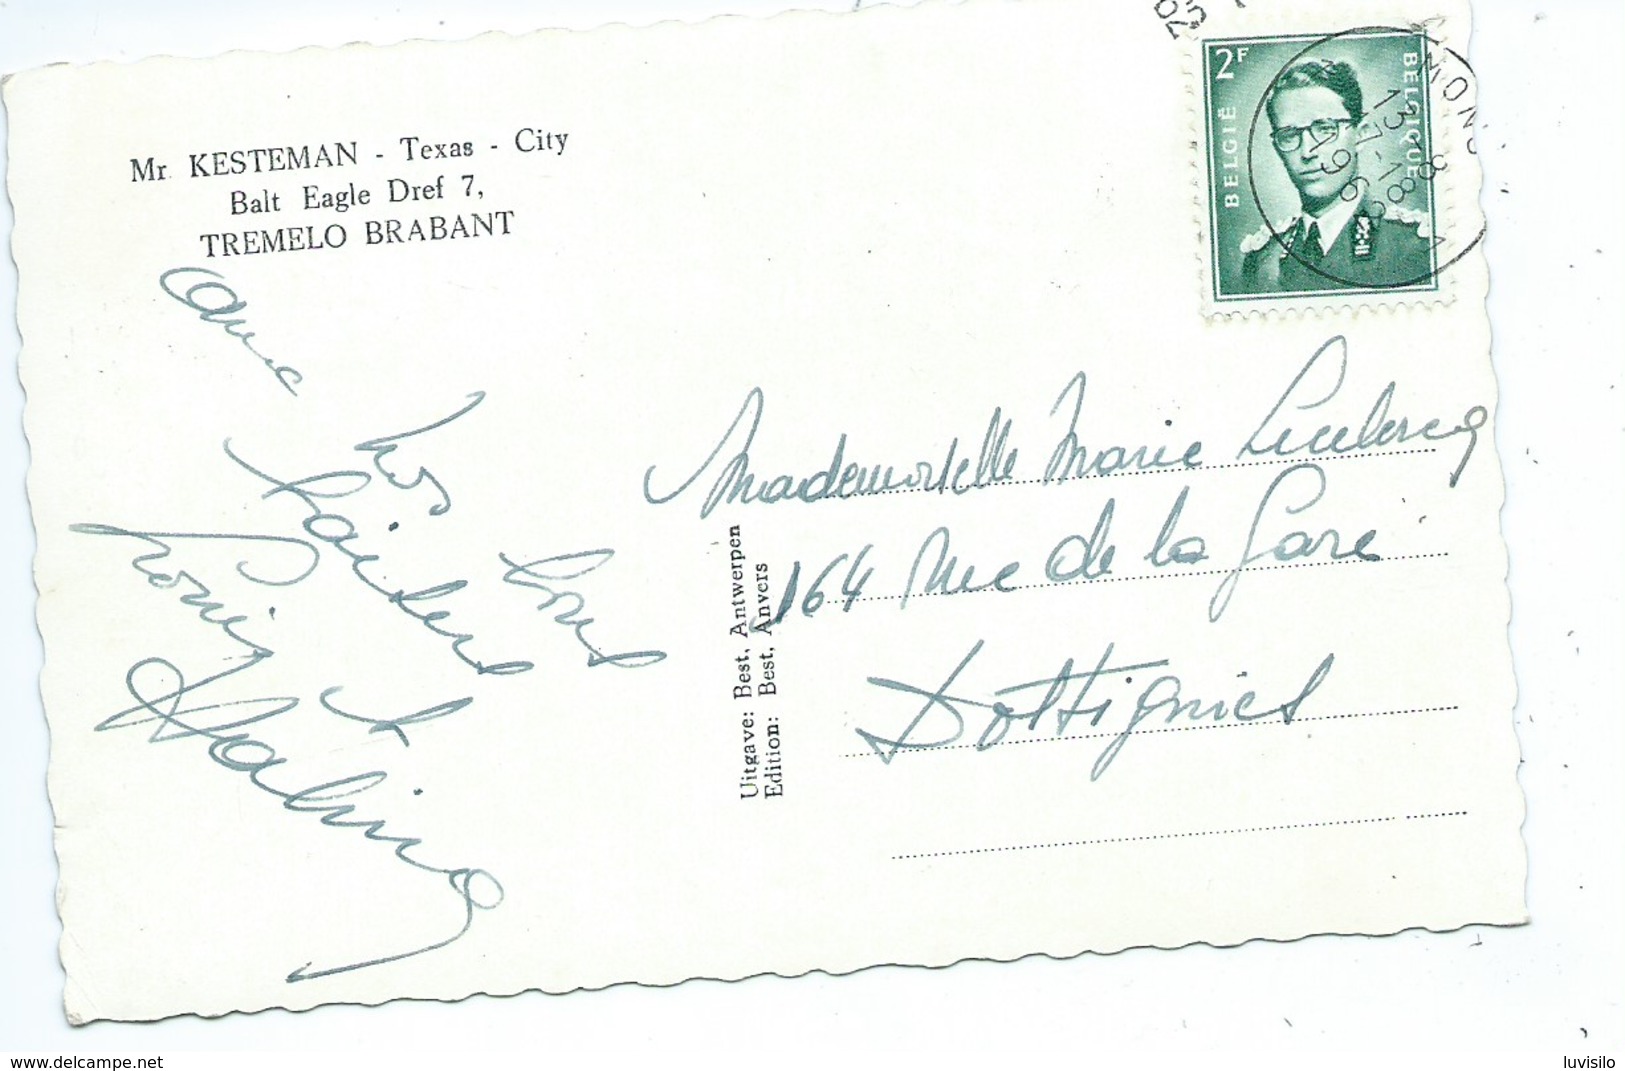 Mr. KESTEMAN - Texas - City
Balt Eagle Dref 7,
TREMELO BRABANT
avec
nos
bons
baisers
Louis et
Uitgave: Best, Antwerpen
Edition: Best, Anvers
2F
BELGIË
BELGIQUE
MONS
13-8
17-18
196
Mademoiselle Marie Leclercq
164 Rue de la Gare
Dottignies
www.delcampe.net
luvisilo